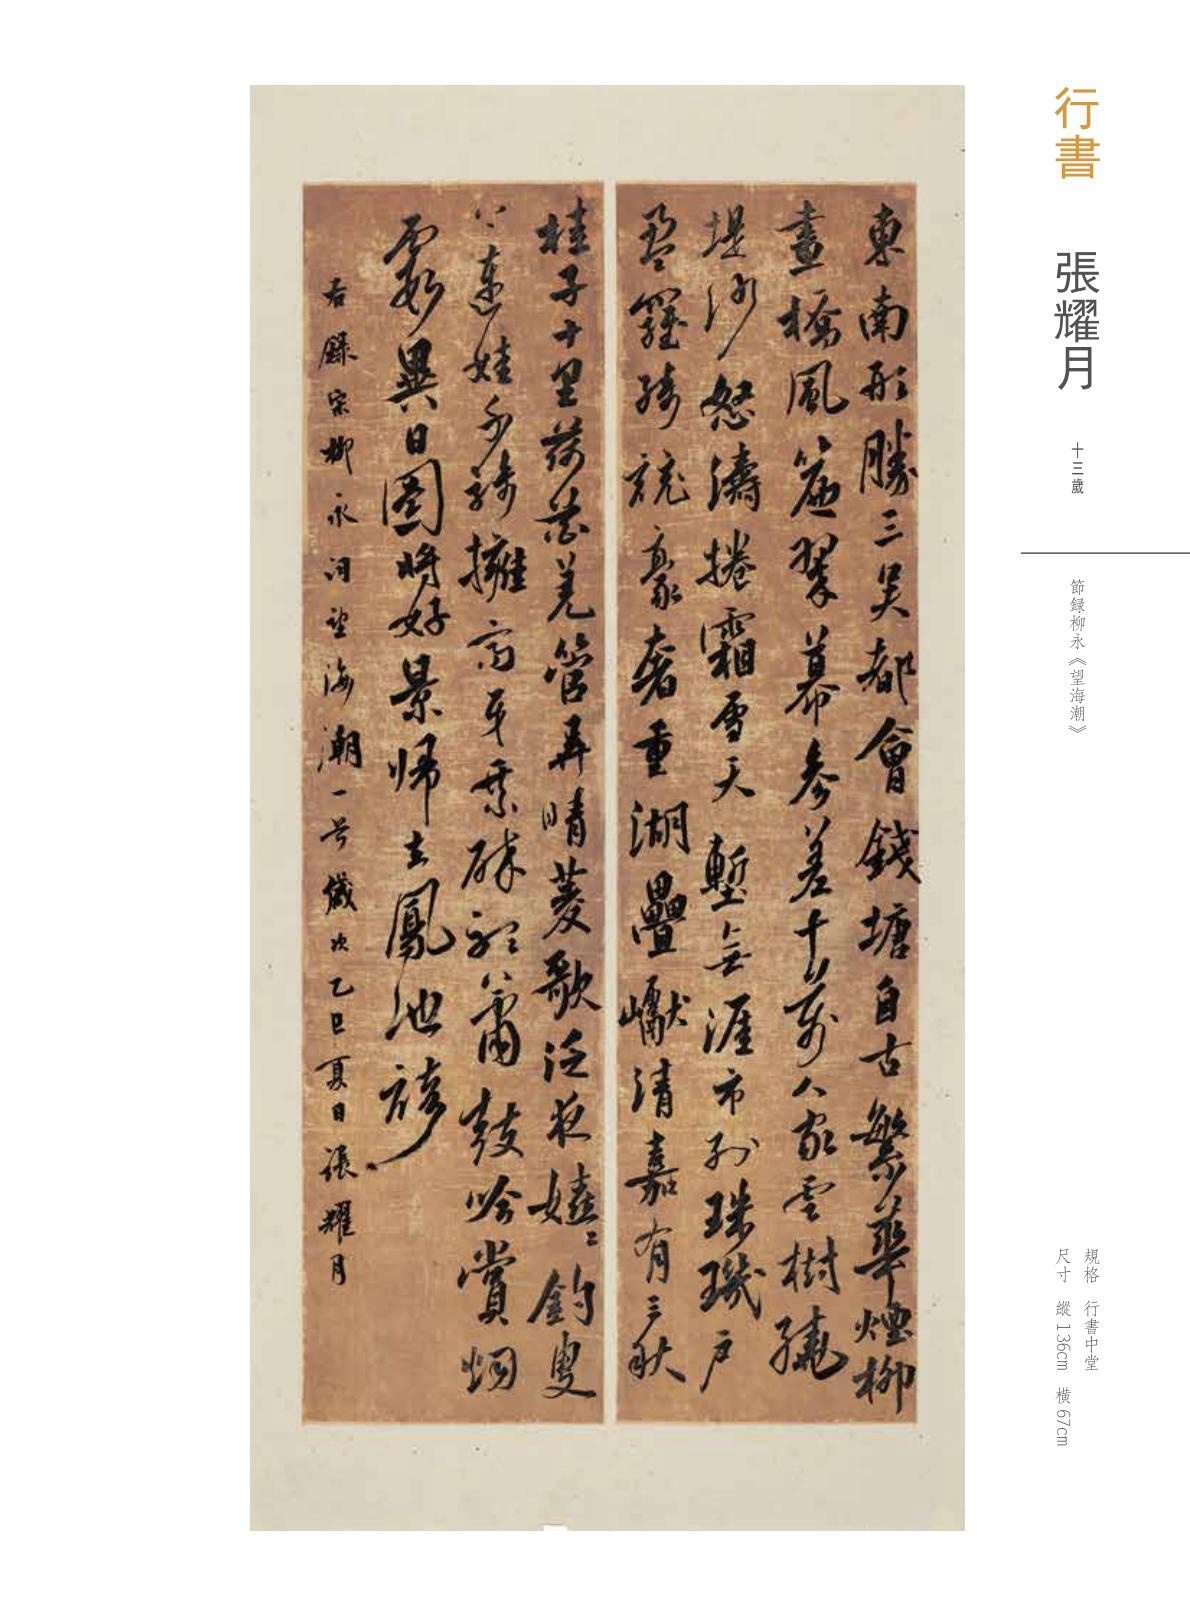 行書 張耀月 十三歲
節録柳永《望海潮》
規格 行書中堂
尺寸 縱136cm 橫67cm
東南形勝三吳都會錢塘自古繁華煙柳
畫橋風簾翠幕參差十萬人家雲樹繞
堤沙怒濤捲霜雪天塹無涯市列珠璣戶
盈羅綺競豪奢重湖疊巘清嘉有三秋
桂子十里荷花羌管弄晴菱歌泛夜嬉〻釣叟
〻蓮娃千騎擁高牙乘醉聽簫鼓吟賞烟
霞異日圖將好景歸去鳳池誇
右錄宋柳永詞望海潮一首歲次乙巳夏日張耀月